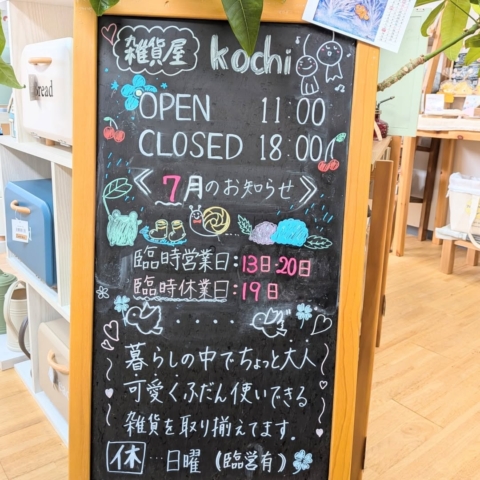 read
雑貨屋 kochi
OPEN 11:00
CLOSED 18:00
《7月のお知らせ》
臨時営業日:13日・20日
臨時休業日:19日
暮らしの中でちょっと大人
可愛くふだん使いできる
雑貨を取り揃えてます.
休…日曜(臨営有)